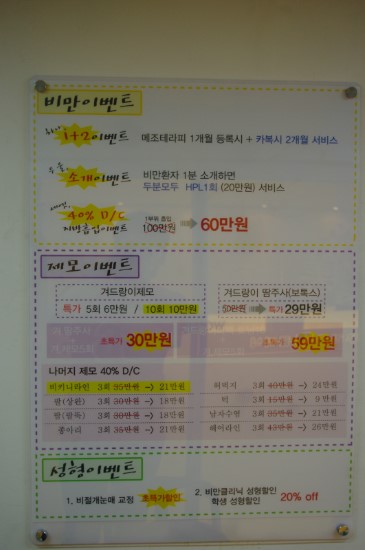 비만이벤트
하나, 1+2이벤트 메조테라피 1개월 등록시 + 카복시 2개월 서비스
두울, 소개이벤트 비만환자 1분 소개하면
두분모두 HPL1회 (20만원) 서비스
40% D/C 지방흡입이벤트 1부위 흡입 100만원 ⇒ 60만원
제모이벤트
겨드랑이제모
특가 5회 6만원 / 10회 10만원
겨드랑이 땀주사(보톡스)
50만원 → 특가 29만원
초특가! 30만원
초특가! 59만원
나머지 제모 40% D/C
비키니라인 3회 35만원 -> 21만원
팔(상완) 3회 30만원 -> 18만원
팔(팔뚝) 3회 30만원 -> 18만원
종아리 3회 35만원 -> 21만원
허벅지 3회 40만원 -> 24만원
턱 3회 15만원 -> 9만원
남자수염 3회 35만원 -> 21만원
헤어라인 3회 43만원 -> 26만원
성형이벤트
1. 비절개눈매 교정 초특가할인
2. 비만클리닉 성형할인
학생 성형할인 20% off